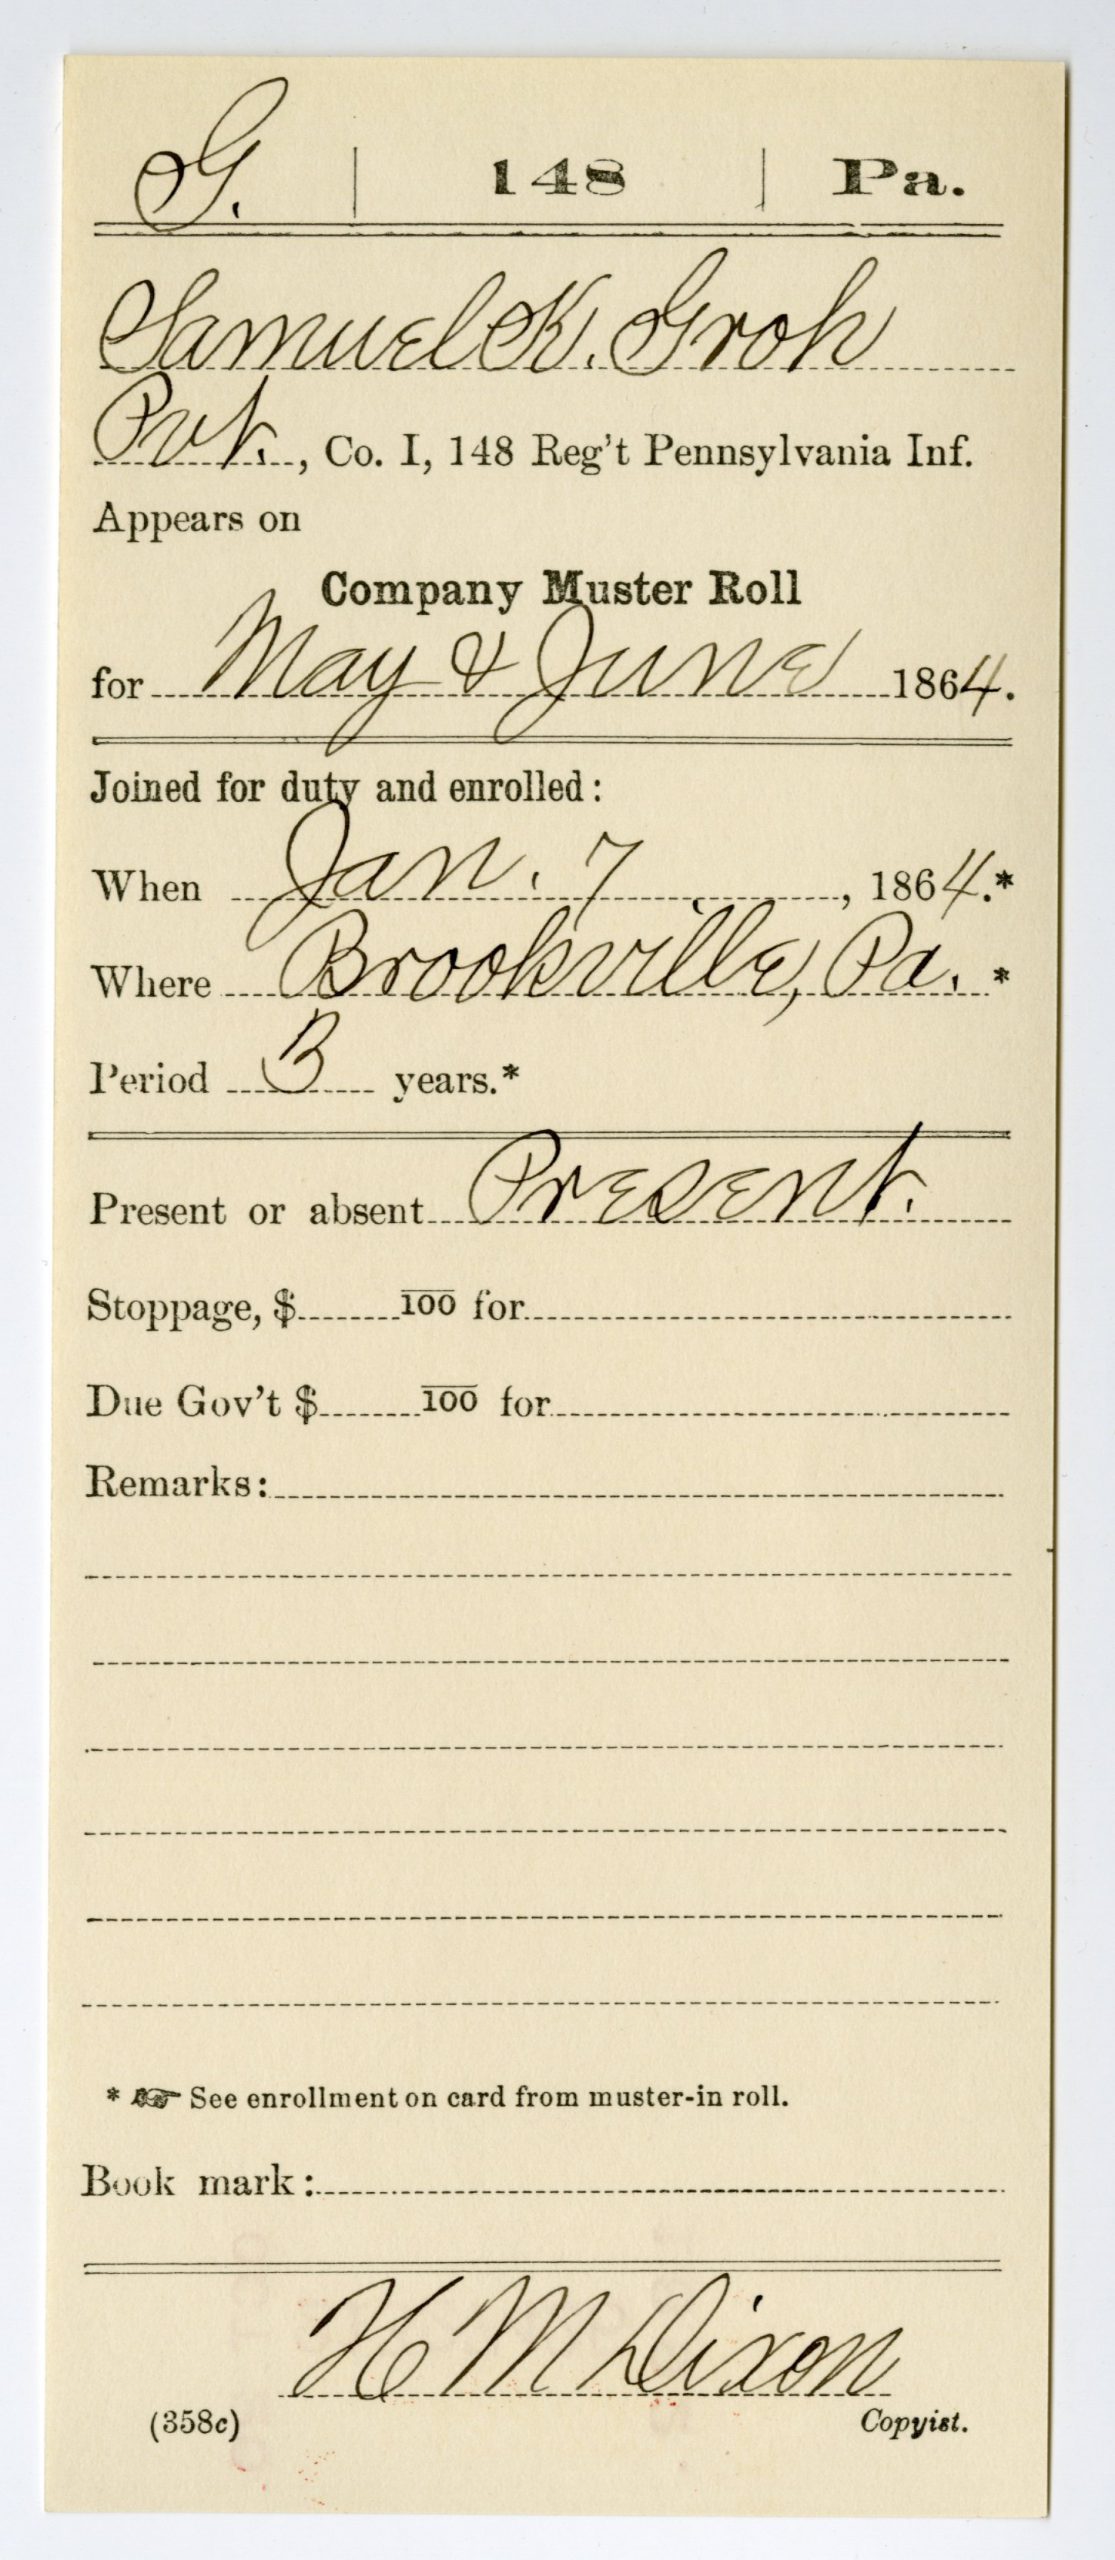 G. | 148 | Pa.
Samuel K. Groh
Pvt., Co. I, 148 Reg't Pennsylvania Inf.
Appears on
Company Muster Roll
for May & June 1864.
Joined for duty and enrolled:
When Jan. 7, 1864.*
Where Brookville, Pa. *
Period 3 years.*
Present or absent Present.
Stoppage, $ 100 for
Due Gov't $ 100 for
Remarks:
* ☞ See enrollment on card from muster-in roll.
Book mark:
H M Dixon
(358c) Copyist.